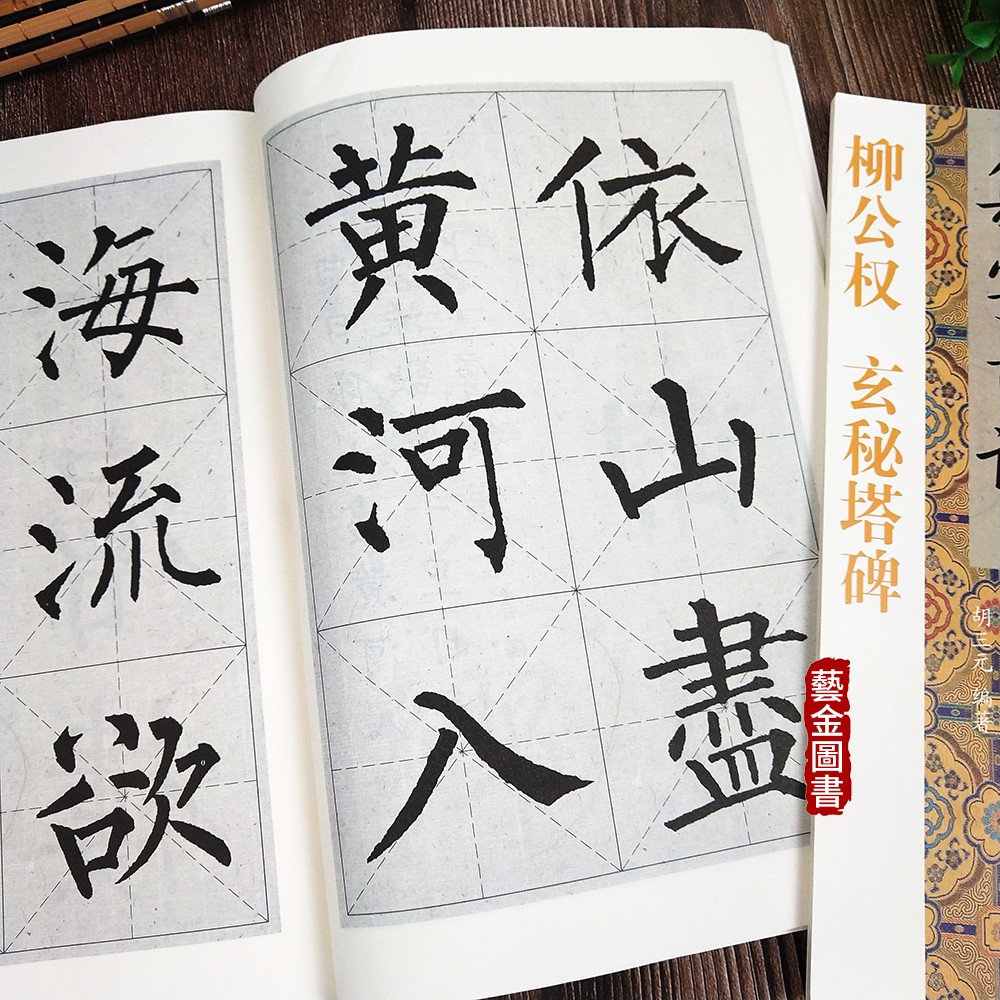 依山盡
黄河入
海流欲
柳公权 玄秘塔碑
胡三元 编著
藝金圖書